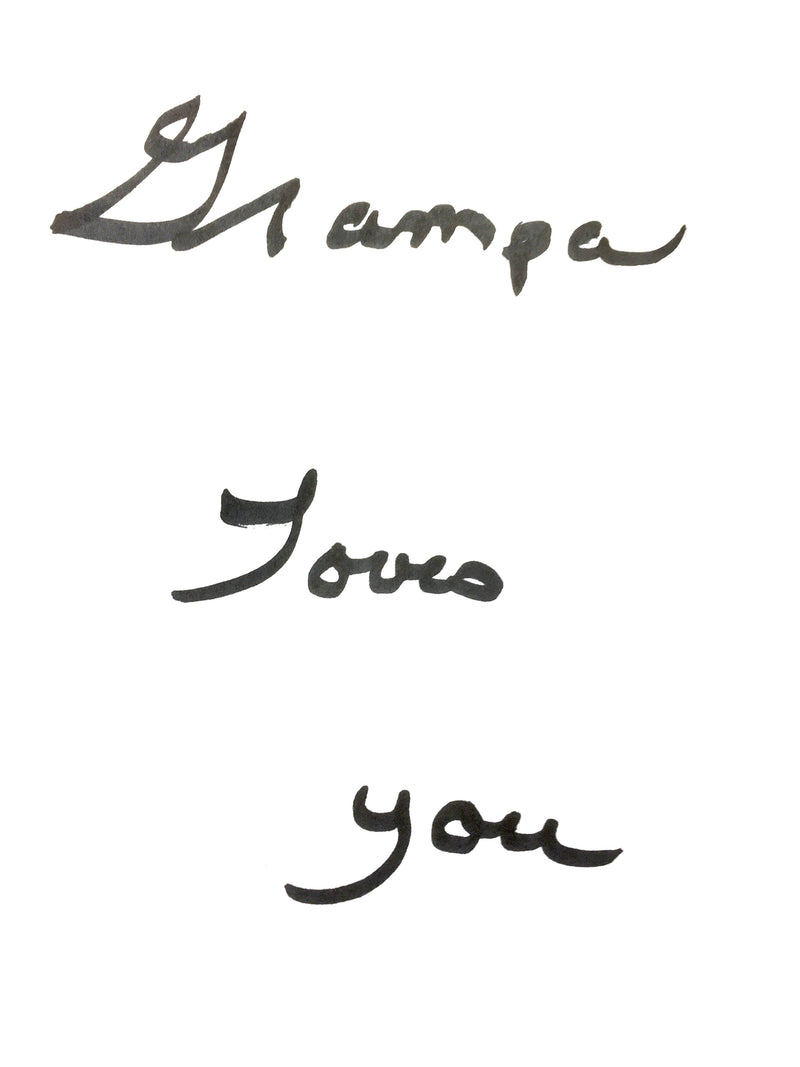 Grampa
Loves
you